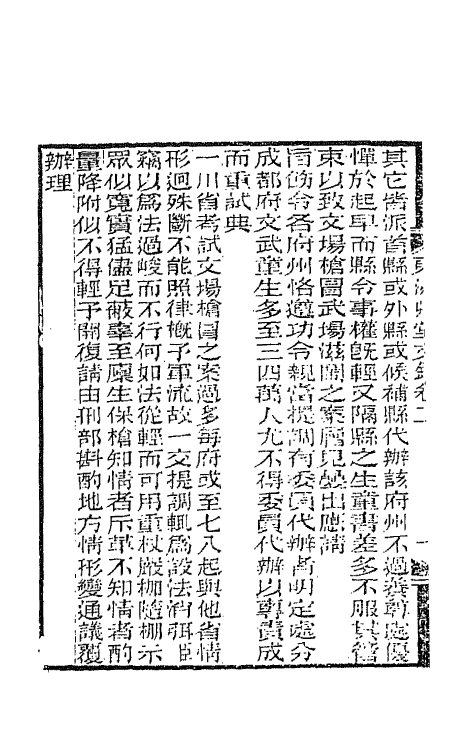 其它皆派首縣或外縣或候補縣代辦該府州不過養尊處優
憚於起早而縣令事權旣輕又隔縣之生童書差多不服其管
束以致文場槍冒武場滋鬧之案層見疊出應請
旨飭令各府州恪遵功令親當提調有委員代辦者明定處分
成都府文武童生多至三四萬人尤不得委員代辦以專責成
而重試典
一川省考試文場槍冒之案過多每府或至七八起與他省情
形迥殊斷不能照律槪予軍流故一交提調輒爲設法消弭臣
竊以爲法過峻而不行何如法從輕而可用重杖嚴枷隨棚示
眾似寬實猛儘足蔽辜至廩生保槍知情者斥革不知情者酌
量降附似不得輕予開復請由刑部斟酌地方情形變通議覆
辦理